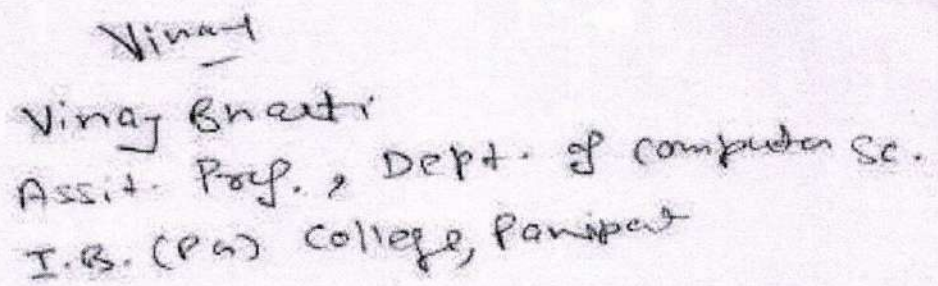 Vinay
Vinay Bharti
Assit. Prof., Dept. of computer Sc.
I.B. (PG) College, Panipat